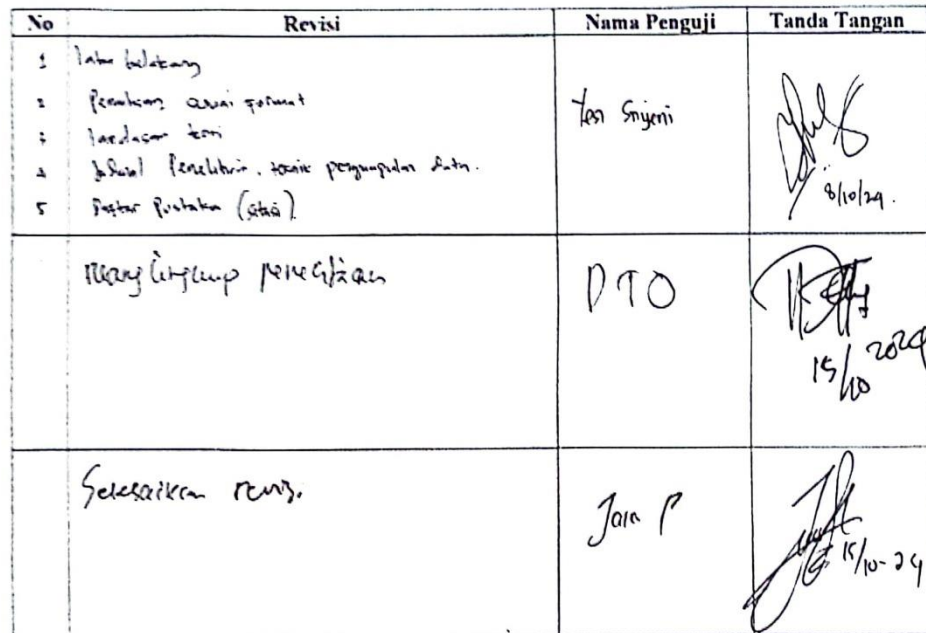 No Revisi Nama Penguji Tanda Tangan
1 latar belakang
2 Penulisan sesuai format
3 landasan teori
4 Jadwal Penelitian, teknik pengumpulan data.
5 Daftar Pustaka (sitasi)
Yesi Sriyeni
8/10/24.
ruang lingkup penelitian
DTO
15/10 2024
Selesaikan revisi.
Jain P
15/10-24